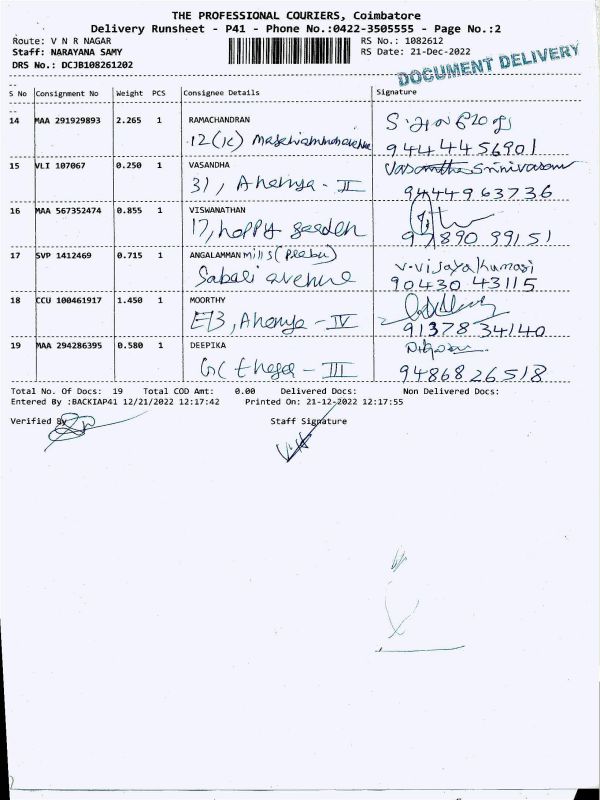 THE PROFESSIONAL COURIERS, Coimbatore
Delivery Runsheet - P41 - Phone No.:0422-3505555 - Page No.:2
Route: V N R NAGAR RS No.: 1082612
Staff: NARAYANA SAMY RS Date: 21-Dec-2022
DRS No.: DCJB108261202
DOCUMENT DELIVERY
S No Consignment No Weight PCS Consignee Details Signature
14 MAA 291929893 2.265 1 RAMACHANDRAN
12(12)
9444456901
15 VLI 107067 0.250 1 VASANDHA Vasantha Srinivasan
31, Ahenya - II
9444963736
16 MAA 567352474 0.855 1 VISWANATHAN
17, happy garden
97890 99151
17 SVP 1412469 0.715 1 ANGALAMMAN mills V. Vijayakumari
Sabari avenue 90430 43115
18 CCU 100461917 1.450 1 MOORTHY
E13, Ahenya - IV 91378 34140
19 MAA 294286395 0.580 1 DEEPIKA
III 9486826518
Total No. Of Docs: 19 Total COD Amt: 0.00 Delivered Docs: Non Delivered Docs:
Entered By :BACKIAP41 12/21/2022 12:17:42 Printed On: 21-12-2022 12:17:55
Verified By Staff Signature